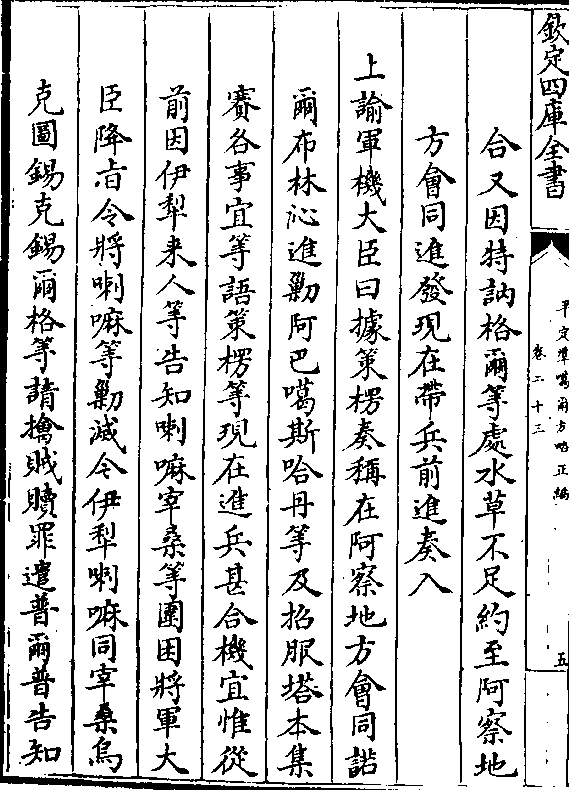 欽定四庫全書
平定準噶爾方略正編
卷二十三
五
合又因特訥格爾等處水草不足約至阿察地
方會同進發現在帶兵前進奏入
上諭軍機大臣曰據策楞奏稱在阿察地方會同諾
爾布林沁進勦阿巴噶斯哈丹等及招服塔本集
賽各事宜等語策楞等現在進兵甚合機宜惟從
前因伊犁来人等告知喇嘛宰桑等圍困將軍大
臣降㫖令將喇嘛等勦滅今伊犁喇嘛同宰桑烏
克圖錫克錫爾格等請擒賊贖罪遣普爾普告知